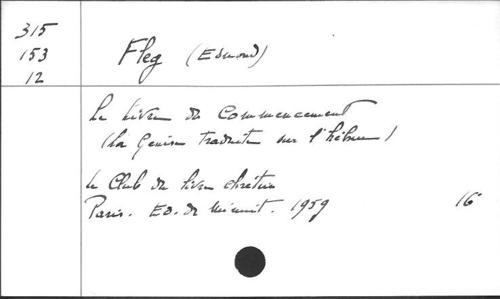 315
153
12
Fleg (Edmond)
Le Livre du Commencement
(La Genèse traduite sur l'hébreu)
Le Club du livre chrétien
Paris. Ed. de Minuit. 1959
16°